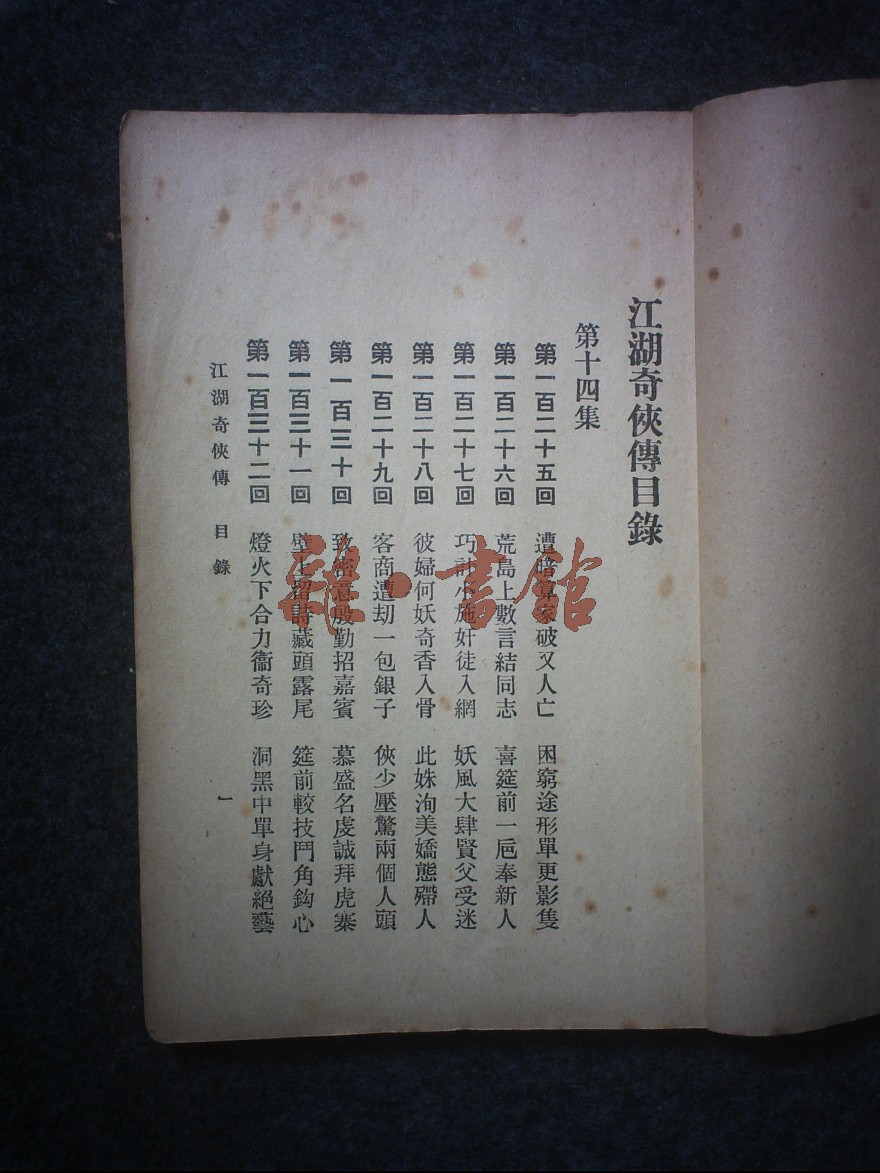 江湖奇俠傳目錄
第十四集
第一百二十五回 遭暗算家破又人亡 困窮途形單更影隻
第一百二十六回 荒島上數言結同志 喜筵前一巵奉新人
第一百二十七回 巧計小施奸徒入網 妖風大肆賢父受迷
第一百二十八回 彼婦何妖奇香入骨 此姝洵美嬌態殢人
第一百二十九回 客商遭刧一包銀子 俠少壓驚兩個人頭
第一百三十回 致密意殷勤招嘉賓 慕盛名虔誠拜虎寨
第一百三十一回 壁上留詩藏頭露尾 筵前較技鬥角鈎心
第一百三十二回 燈火下合力衞奇珍 洞黑中單身獻絕藝
江湖奇俠傳 目錄 一
雜·書館